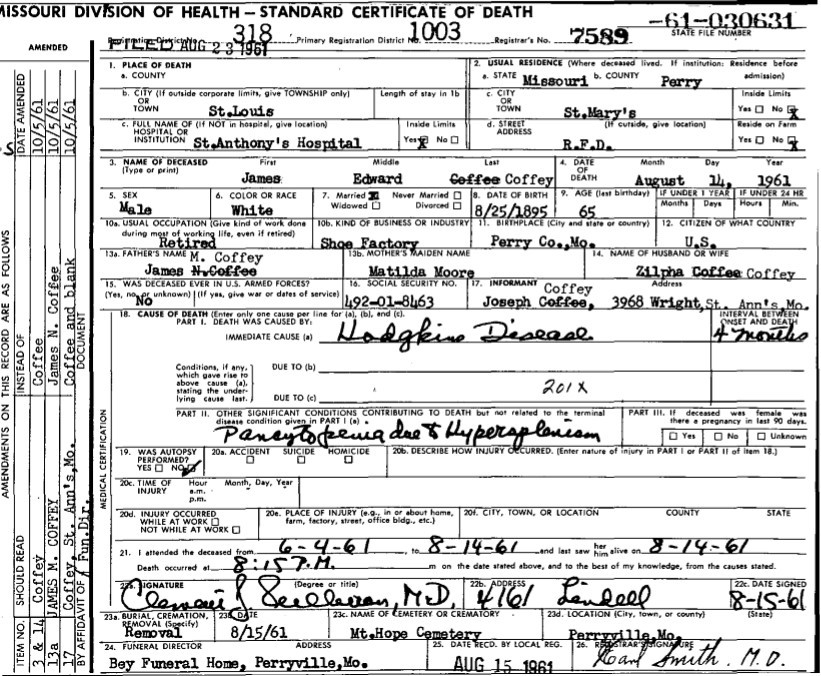 MISSOURI DIVISION OF HEALTH — STANDARD CERTIFICATE OF DEATH
-61-030631
STATE FILE NUMBER
AMENDED
FILED AUG 23 1961
Registration District No. 318 Primary Registration District No. 1003 Registrar's No. 7589
1. PLACE OF DEATH
a. COUNTY
2. USUAL RESIDENCE (Where deceased lived. If institution: Residence before admission)
a. STATE Missouri b. COUNTY Perry
b. CITY (If outside corporate limits, give TOWNSHIP only) OR TOWN St.Louis
Length of stay in 1b
c. CITY OR TOWN St.Mary's
Inside Limits Yes ☐ No ☒
c. FULL NAME OF (If NOT in hospital, give location) HOSPITAL OR INSTITUTION St.Anthony's Hospital
Inside Limits Yes ☒ No ☐
d. STREET ADDRESS (If outside, give location) R.F.D.
Reside on Farm Yes ☐ No ☒
3. NAME OF DECEASED (Type or print)
First James Middle Edward Last Coffee Coffey
4. DATE OF DEATH Month Day Year
August 14, 1961
5. SEX Male
6. COLOR OR RACE White
7. Married ☒ Never Married ☐ Widowed ☐ Divorced ☐
8. DATE OF BIRTH 8/25/1895
9. AGE (last birthday) 65
IF UNDER 1 YEAR Months Days
IF UNDER 24 HR Hours Min.
10a. USUAL OCCUPATION (Give kind of work done during most of working life, even if retired) Retired
10b. KIND OF BUSINESS OR INDUSTRY Shoe Factory
11. BIRTHPLACE (City and state or country) Perry Co.,Mo.
12. CITIZEN OF WHAT COUNTRY U.S.
13a. FATHER'S NAME M. Coffey
James N.Coffee
13b. MOTHER'S MAIDEN NAME Matilda Moore
14. NAME OF HUSBAND OR WIFE Zilpha Coffee Coffey
15. WAS DECEASED EVER IN U.S. ARMED FORCES? (Yes, no, or unknown) (If yes, give war or dates of service) No
16. SOCIAL SECURITY NO. 492-01-8463
17. INFORMANT Coffey Address
Joseph Coffee, 3968 Wright, St. Ann's, Mo.
18. CAUSE OF DEATH (Enter only one cause per line for (a), (b), and (c).
PART I. DEATH WAS CAUSED BY:
IMMEDIATE CAUSE (a) Hodgkins Disease
INTERVAL BETWEEN ONSET AND DEATH
4 months
Conditions, if any, which gave rise to above cause (a), stating the underlying cause last.
DUE TO (b)
DUE TO (c)
201X
PART II. OTHER SIGNIFICANT CONDITIONS CONTRIBUTING TO DEATH but not related to the terminal disease condition given in PART I (a)
Pancytopenia due to Hypersplenism
PART III. If deceased was female was there a pregnancy in last 90 days.
☐ Yes ☐ No ☐ Unknown
19. WAS AUTOPSY PERFORMED? YES ☐ NO ☑
20a. ACCIDENT ☐ SUICIDE ☐ HOMICIDE ☐
20b. DESCRIBE HOW INJURY OCCURRED. (Enter nature of injury in PART I or PART II of item 18.)
20c. TIME OF INJURY Hour a.m. p.m. Month, Day, Year
20d. INJURY OCCURRED WHILE AT WORK ☐ NOT WHILE AT WORK ☐
20e. PLACE OF INJURY (e.g., in or about home, farm, factory, street, office bldg., etc.)
20f. CITY, TOWN, OR LOCATION COUNTY STATE
21. I attended the deceased from 6-4-61, to 8-14-61 and last saw her him alive on 8-14-61
Death occurred at 8:15 P.M. m on the date stated above, and to the best of my knowledge, from the causes stated.
22a. SIGNATURE (Degree or title) M.D.
22b. ADDRESS 4161 Lindell
22c. DATE SIGNED 8-15-61
23a. BURIAL, CREMATION, REMOVAL (Specify) Removal
23b. DATE 8/15/61
23c. NAME OF CEMETERY OR CREMATORY Mt.Hope Cemetery
23d. LOCATION (City, town, or county) (State) Perryville,Mo.
24. FUNERAL DIRECTOR ADDRESS
Bey Funeral Home, Perryville,Mo.
25. DATE RECD. BY LOCAL REG. AUG 15 1961
26. REGISTRAR'S SIGNATURE Earl Smith. M.D.
MEDICAL CERTIFICATION
AMENDMENTS ON THIS RECORD ARE AS FOLLOWS
ITEM NO. SHOULD READ INSTEAD OF DATE AMENDED
3 & 14 Coffey Coffee 10/5/61
13a JAMES M. COFFEY James N. Coffee 10/5/61
17 Coffey, St. Ann's,Mo. Coffee and blank 10/5/61
BY AFFIDAVIT OF Fun.Dir. DOCUMENT
S